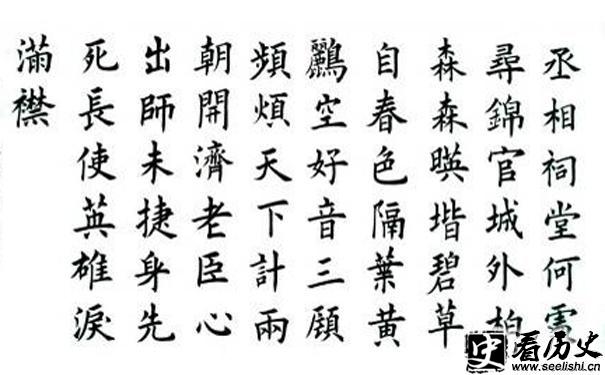 丞相祠堂何處
尋錦官城外柏
森森暎堦碧草
自春色隔葉黃
鸝空好音三顧
頻煩天下計兩
朝開濟老臣心
出師未捷身先
死長使英雄淚
滿襟
史 看历史
www.seelishi.cn